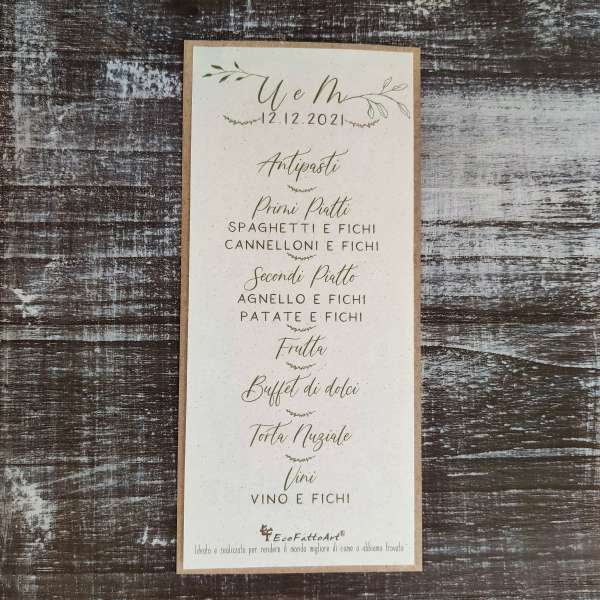 U e M
12.12.2021
Antipasti
Primi Piatti
SPAGHETTI E FICHI
CANNELLONI E FICHI
Secondi Piatto
AGNELLO E FICHI
PATATE E FICHI
Frutta
Buffet di dolci
Torta Nuziale
Vini
VINO E FICHI
EcoFattoArt®
Ideato e realizzato per rendere il mondo migliore di come lo abbiamo trovato